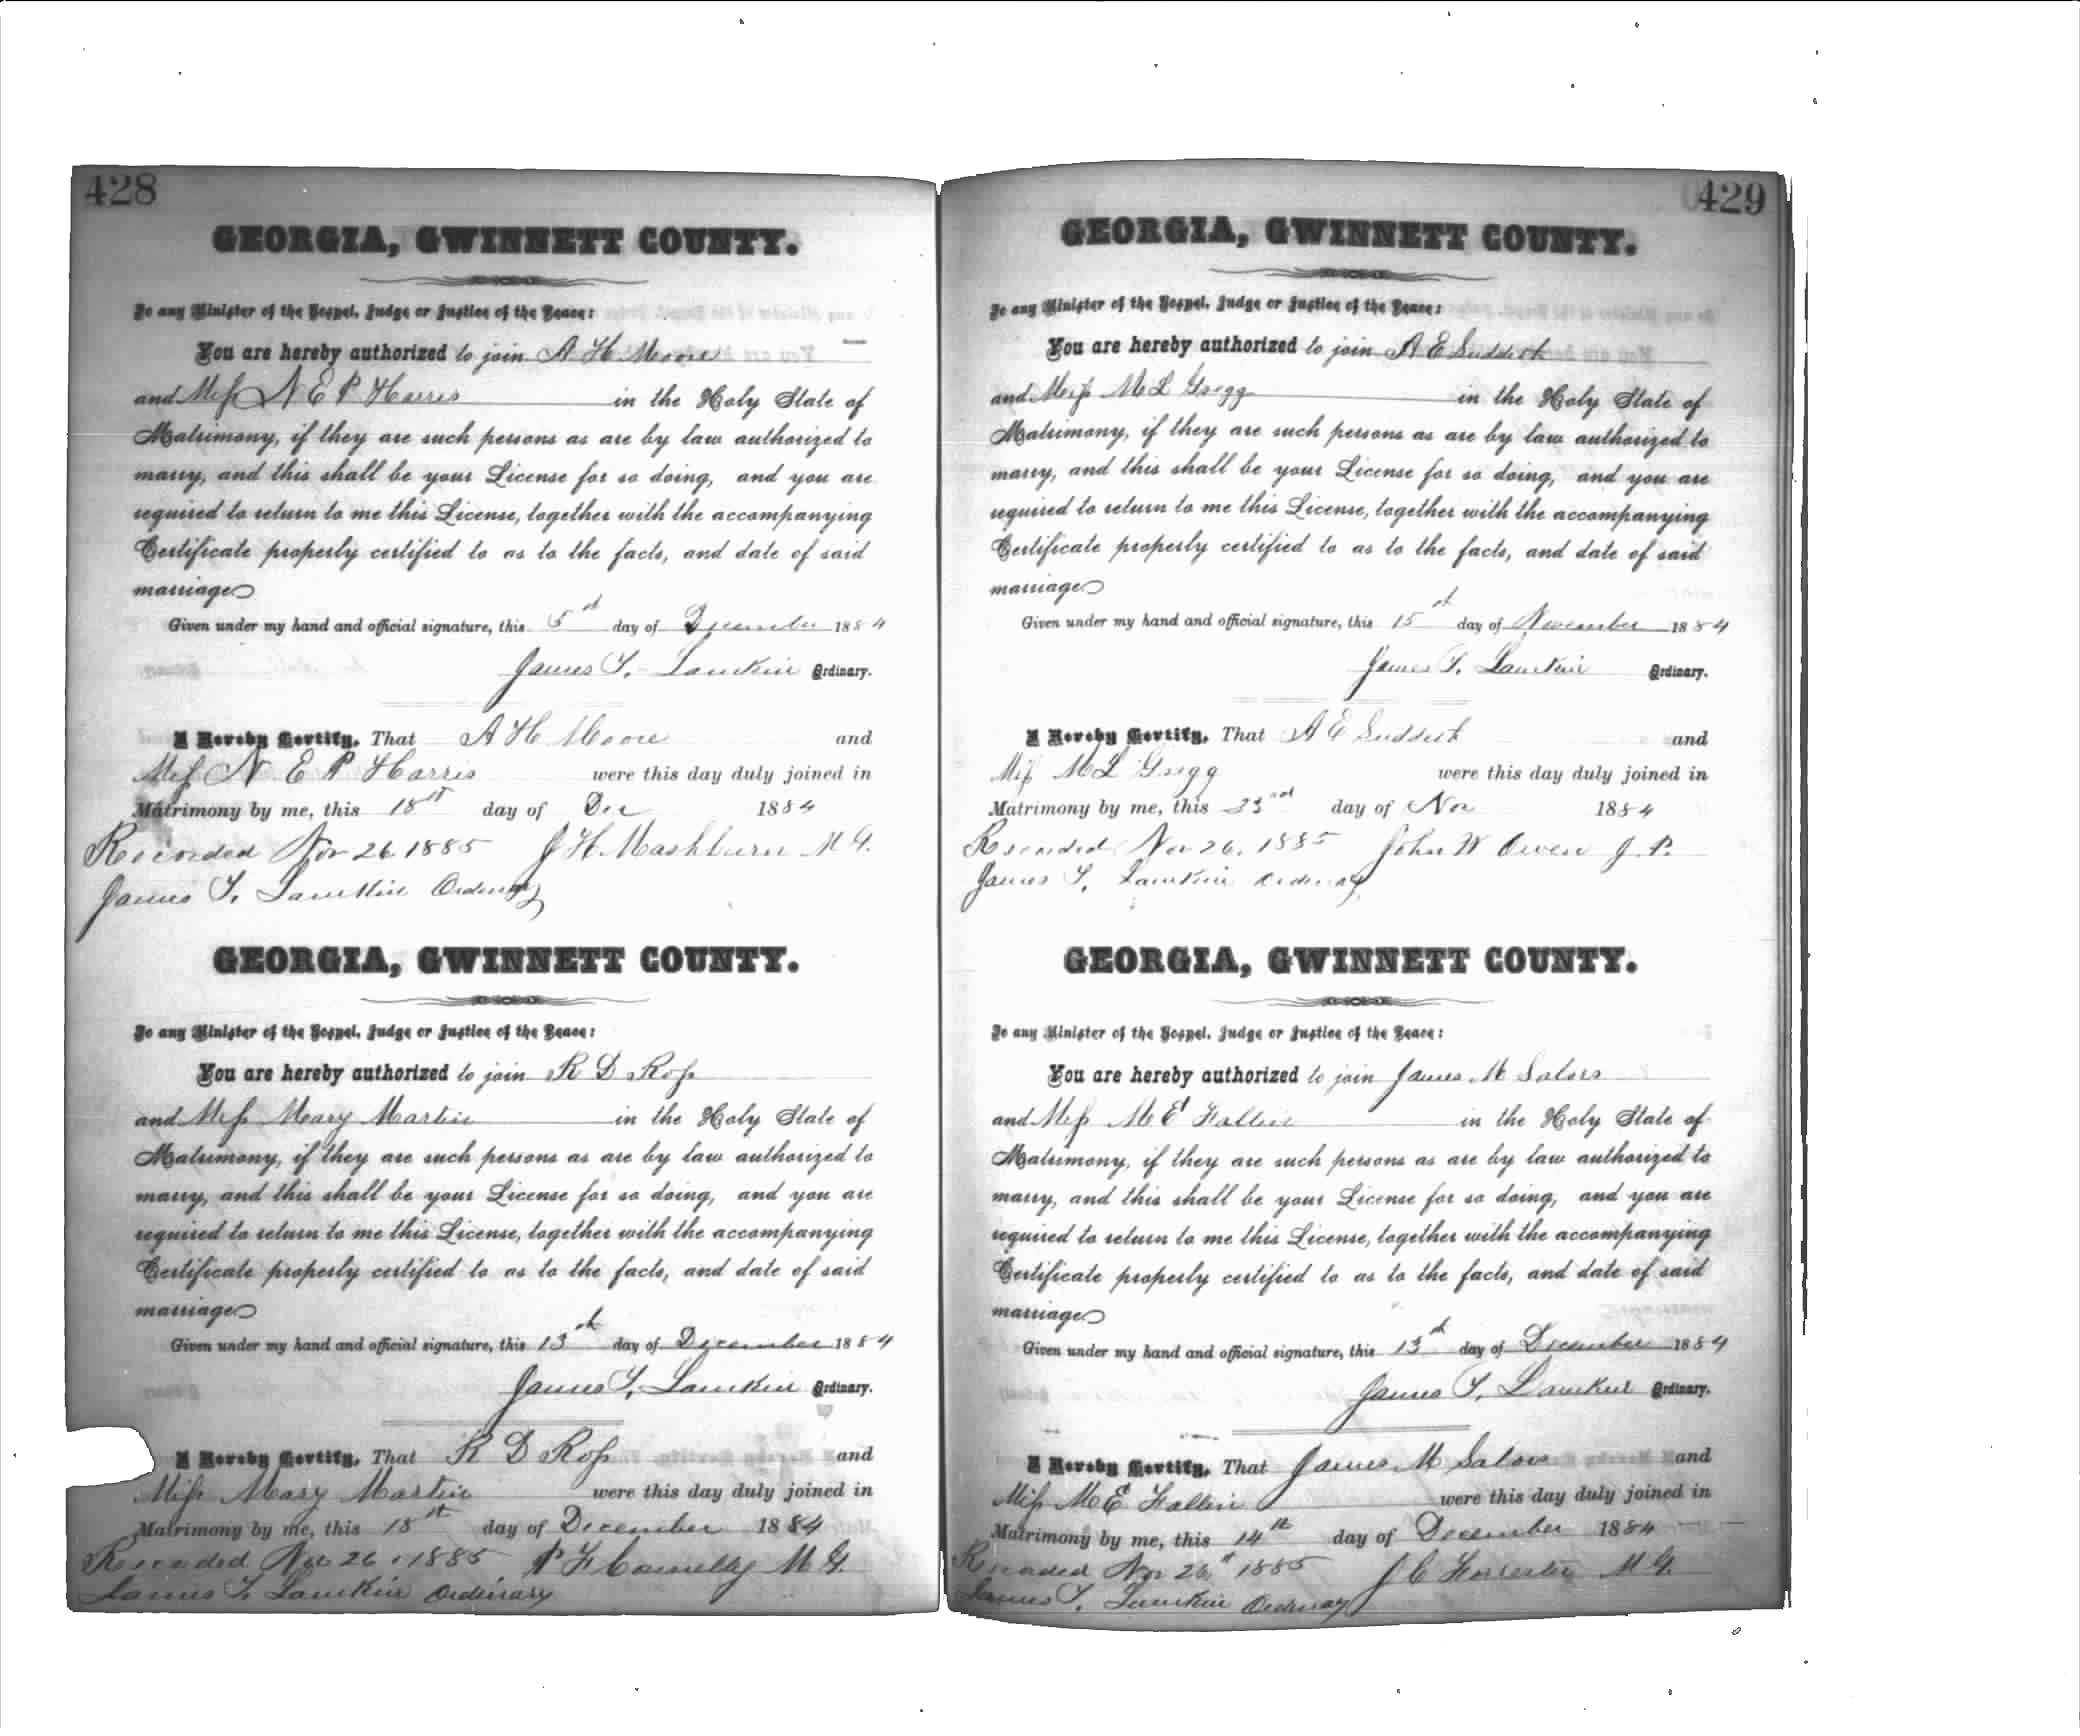 428
GEORGIA, GWINNETT COUNTY.
To any Minister of the Gospel, Judge or Justice of the Peace:
You are hereby authorized to join A H Moore
and Miss N E P Harris in the Holy State of
Matrimony, if they are such persons as are by law authorized to
marry, and this shall be your License for so doing, and you are
required to return to me this License, together with the accompanying
Certificate properly certified to as to the facts, and date of said
marriage
Given under my hand and official signature, this 5th day of December 1884
James T. Lamkin Ordinary.
I Hereby Certify, That A H Moore and
Miss N E P Harris were this day duly joined in
Matrimony by me, this 18th day of Dec 1884
Recorded Nov 26 1885 J H Mashburn M G.
James T. Lamkin Ordinary
GEORGIA, GWINNETT COUNTY.
To any Minister of the Gospel, Judge or Justice of the Peace:
You are hereby authorized to join R D Ross
and Miss Mary Martin in the Holy State of
Matrimony, if they are such persons as are by law authorized to
marry, and this shall be your License for so doing, and you are
required to return to me this License, together with the accompanying
Certificate properly certified to as to the facts, and date of said
marriage
Given under my hand and official signature, this 13th day of December 1884
James T. Lamkin Ordinary.
I Hereby Certify, That R D Ross and
Miss Mary Martin were this day duly joined in
Matrimony by me, this 18th day of December 1884
Recorded Nov 26 1885 M G.
James T. Lamkin Ordinary
429
GEORGIA, GWINNETT COUNTY.
To any Minister of the Gospel, Judge or Justice of the Peace:
You are hereby authorized to join A E Suddeth
and Miss M L Gregg in the Holy State of
Matrimony, if they are such persons as are by law authorized to
marry, and this shall be your License for so doing, and you are
required to return to me this License, together with the accompanying
Certificate properly certified to as to the facts, and date of said
marriage
Given under my hand and official signature, this 15th day of November 1884
James T. Lamkin Ordinary.
I Hereby Certify, That A E Suddeth and
Miss M L Gregg were this day duly joined in
Matrimony by me, this 23rd day of Nov 1884
Recorded Nov 26, 1885 John W Owen J. P.
James T. Lamkin Ordinary
GEORGIA, GWINNETT COUNTY.
To any Minister of the Gospel, Judge or Justice of the Peace:
You are hereby authorized to join James M Salors
and Miss M E Fallin in the Holy State of
Matrimony, if they are such persons as are by law authorized to
marry, and this shall be your License for so doing, and you are
required to return to me this License, together with the accompanying
Certificate properly certified to as to the facts, and date of said
marriage
Given under my hand and official signature, this 13th day of December 1884
James T. Lamkin Ordinary.
I Hereby Certify, That James M Salors and
Miss M E Fallin were this day duly joined in
Matrimony by me, this 14th day of December 1884
Recorded Nov 26th 1885 J C Forrester M G.
James T. Lamkin Ordinary